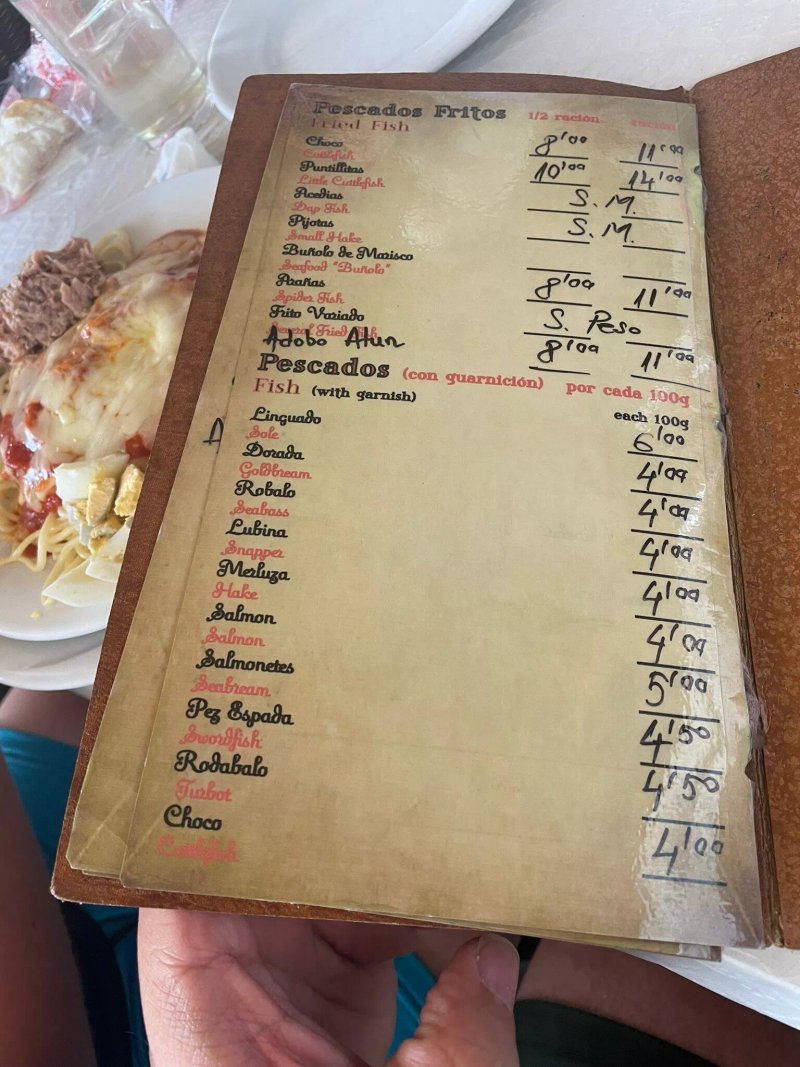 Pescados Fritos 1/2 ración ración
Fried Fish
Choco 8'00 11'00
Cuttlefish
Puntillitas 10'00 14'00
Little Cuttlefish
Acedias S.M.
Dap Fish
Pijotas S.M.
Small Hake
Buñolo de Marisco
Seafood "Buñolo"
Arañas 8'00 11'00
Spider Fish
Frito Variado S. Peso
Several Fried Fish
Adobo Atun 8'00 11'00
Pescados (con guarnición) por cada 100g
Fish (with garnish) each 100g
Linguado 6'00
Sole
Dorada 4'00
Goldbream
Robalo 4'00
Seabass
Lubina 4'00
Snapper
Merluza 4'00
Hake
Salmon 4'00
Salmon
Salmonetes 5'00
Seabream
Pez Espada 4'50
Swordfish
Rodabalo 4'50
Turbot
Choco 4'00
Cuttlefish